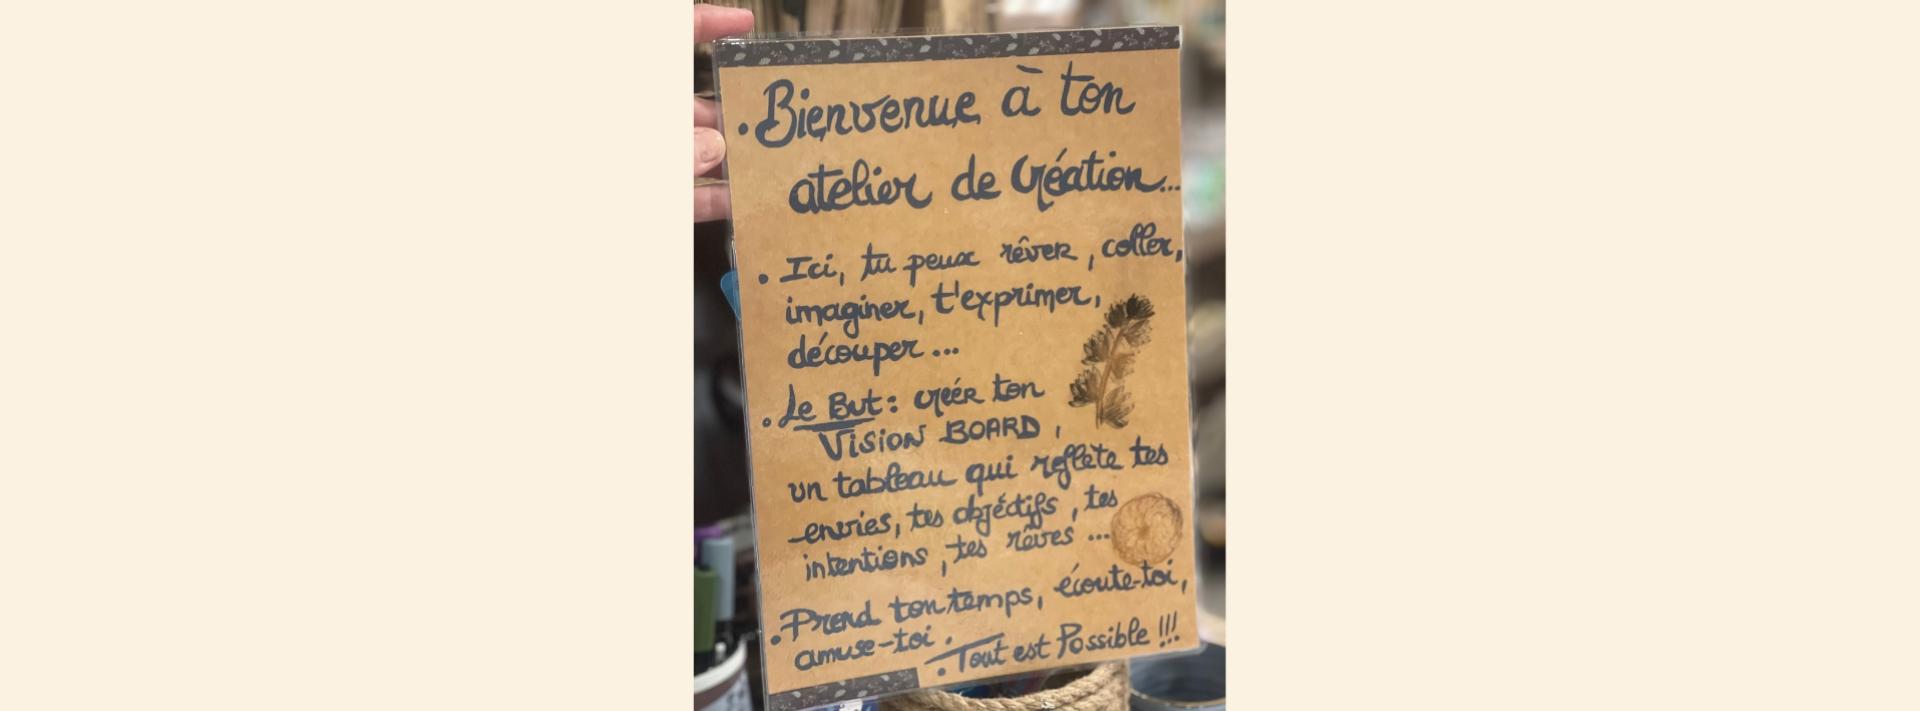 • Bienvenue à ton
atelier de Création...
• Ici, tu peux rêver, coller,
imaginer, t'exprimer,
découper...
• Le But : créer ton
VISION BOARD,
un tableau qui reflète tes
envies, tes objéctifs, tes
intentions, tes rêves ...
• Prend ton temps, écoute-toi,
amuse-toi.
• Tout est Possible !!!